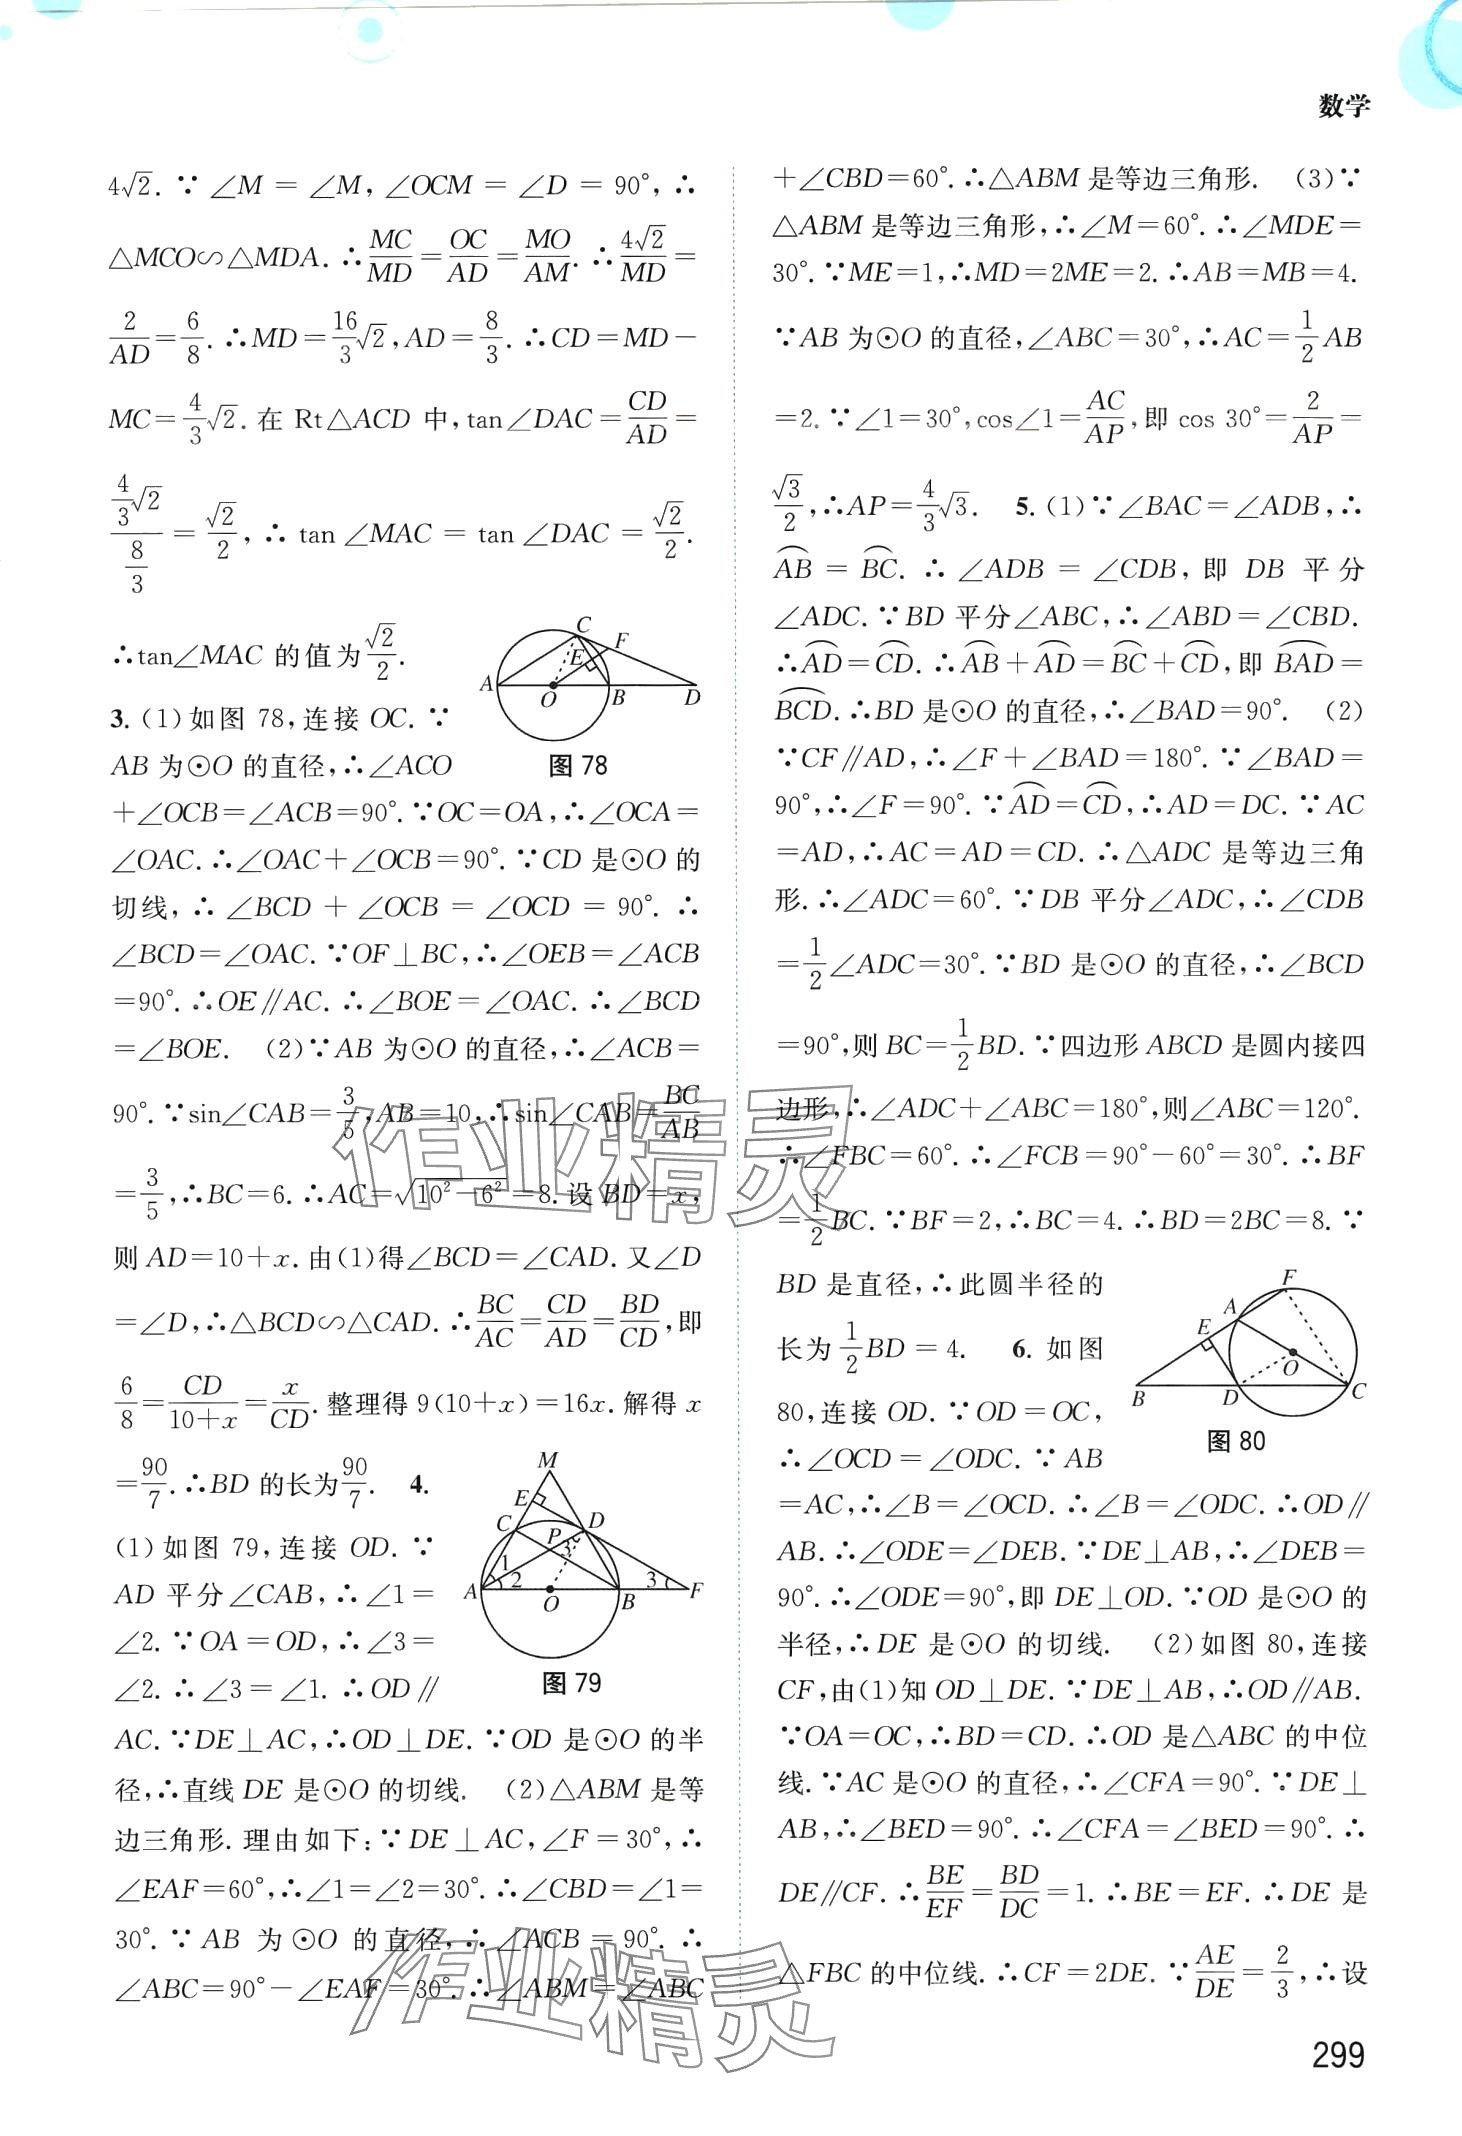 数学
4√2. ∵ ∠M = ∠M, ∠OCM = ∠D = 90°, ∴
△MCO∽△MDA. ∴MC/MD=OC/AD=MO/AM. ∴4√2/MD=
2/AD=6/8. ∴MD=16/3√2, AD=8/3. ∴CD=MD-
MC=4/3√2. 在 Rt△ACD 中, tan∠DAC=CD/AD=
(4/3√2)/(8/3) = √2/2, ∴ tan ∠MAC = tan ∠DAC = √2/2.
∴tan∠MAC 的值为√2/2.
3. (1)如图 78,连接 OC. ∵
AB 为⊙O 的直径,∴∠ACO
+∠OCB=∠ACB=90°. ∵OC=OA,∴∠OCA=
∠OAC. ∴∠OAC+∠OCB=90°. ∵CD 是⊙O 的
切线, ∴ ∠BCD + ∠OCB = ∠OCD = 90°. ∴
∠BCD=∠OAC. ∵OF⊥BC,∴∠OEB=∠ACB
=90°. ∴OE∥AC. ∴∠BOE=∠OAC. ∴∠BCD
=∠BOE. (2)∵AB 为⊙O 的直径,∴∠ACB=
90°. ∵sin∠CAB=3/5,AB=10,∴sin∠CAB=BC/AB
=3/5,∴BC=6. ∴AC=√(10²-6²)=8. 设 BD=x,
则 AD=10+x. 由(1)得∠BCD=∠CAD. 又∠D
=∠D,∴△BCD∽△CAD. ∴BC/AC=CD/AD=BD/CD,即
6/8=CD/(10+x)=x/CD. 整理得 9(10+x)=16x. 解得 x
=90/7. ∴BD 的长为90/7. 4.
(1)如图 79,连接 OD. ∵
AD 平分∠CAB,∴∠1=
∠2. ∵OA=OD,∴∠3=
∠2. ∴∠3=∠1. ∴OD∥
AC. ∵DE⊥AC,∴OD⊥DE. ∵OD 是⊙O 的半
径,∴直线 DE 是⊙O 的切线. (2)△ABM 是等
边三角形. 理由如下:∵DE⊥AC,∠F=30°,∴
∠EAF=60°,∴∠1=∠2=30°. ∴∠CBD=∠1=
30°. ∵ AB 为 ⊙O 的直径,∴ ∠ACB = 90°. ∴
∠ABC=90°-∠EAF=30°. ∴∠ABM=∠ABC
C
F
E
A
O
B
D
图 78
M
E
C
D
P
3
1
2
3
A
O
B
F
图 79
+∠CBD=60°. ∴△ABM 是等边三角形. (3)∵
△ABM 是等边三角形,∴∠M=60°. ∴∠MDE=
30°. ∵ME=1,∴MD=2ME=2. ∴AB=MB=4.
∵AB 为⊙O 的直径,∠ABC=30°,∴AC=1/2 AB
=2. ∵∠1=30°, cos∠1=AC/AP, 即 cos 30°=2/AP=
√3/2,∴AP=4/3√3. 5. (1)∵∠BAC=∠ADB,∴
⌒AB = ⌒BC. ∴ ∠ADB = ∠CDB, 即 DB 平分
∠ADC. ∵BD 平分∠ABC,∴∠ABD=∠CBD.
∴⌒AD=⌒CD. ∴⌒AB+⌒AD=⌒BC+⌒CD,即 ⌒BAD=
⌒BCD. ∴BD 是⊙O 的直径,∴∠BAD=90°. (2)
∵CF∥AD,∴∠F+∠BAD=180°. ∵∠BAD=
90°,∴∠F=90°. ∵⌒AD=⌒CD,∴AD=DC. ∵AC
=AD,∴AC=AD=CD. ∴△ADC 是等边三角
形. ∴∠ADC=60°. ∵DB 平分∠ADC,∴∠CDB
=1/2∠ADC=30°. ∵BD 是⊙O 的直径,∴∠BCD
=90°,则 BC=1/2BD. ∵四边形 ABCD 是圆内接四
边形,∴∠ADC+∠ABC=180°,则∠ABC=120°.
∴∠FBC=60°. ∴∠FCB=90°-60°=30°. ∴BF
=1/2BC. ∵BF=2,∴BC=4. ∴BD=2BC=8. ∵
BD 是直径,∴此圆半径的
长为1/2BD=4. 6. 如图
80,连接 OD. ∵OD=OC,
∴∠OCD=∠ODC. ∵AB
=AC,∴∠B=∠OCD. ∴∠B=∠ODC. ∴OD∥
AB. ∴∠ODE=∠DEB. ∵DE⊥AB,∴∠DEB=
90°. ∴∠ODE=90°,即 DE⊥OD. ∵OD 是⊙O 的
半径,∴DE 是⊙O 的切线. (2)如图 80,连接
CF,由(1)知 OD⊥DE. ∵DE⊥AB,∴OD∥AB.
∵OA=OC,∴BD=CD. ∴OD 是△ABC 的中位
线. ∵AC 是⊙O 的直径,∴∠CFA=90°. ∵DE⊥
AB,∴∠BED=90°. ∴∠CFA=∠BED=90°. ∴
DE∥CF. ∴BE/EF=BD/DC=1. ∴BE=EF. ∴DE 是
△FBC 的中位线. ∴CF=2DE. ∵AE/DE=2/3,∴设
F
A
E
O
B
D
C
图 80
作业精灵
作业精灵
299